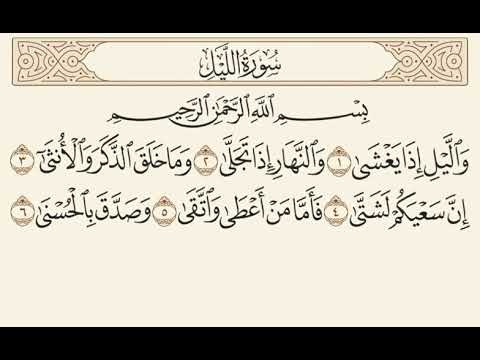 سُورَةُ اللَّيْلِ
بِسْمِ اللَّهِ الرَّحْمَٰنِ الرَّحِيمِ
وَالَّيْلِ إِذَا يَغْشَىٰ ١ وَالنَّهَارِ إِذَا تَجَلَّىٰ ٢ وَمَا خَلَقَ الذَّكَرَ وَالْأُنثَىٰ ٣
إِنَّ سَعْيَكُمْ لَشَتَّىٰ ٤ فَأَمَّا مَنْ أَعْطَىٰ وَاتَّقَىٰ ٥ وَصَدَّقَ بِالْحُسْنَىٰ ٦